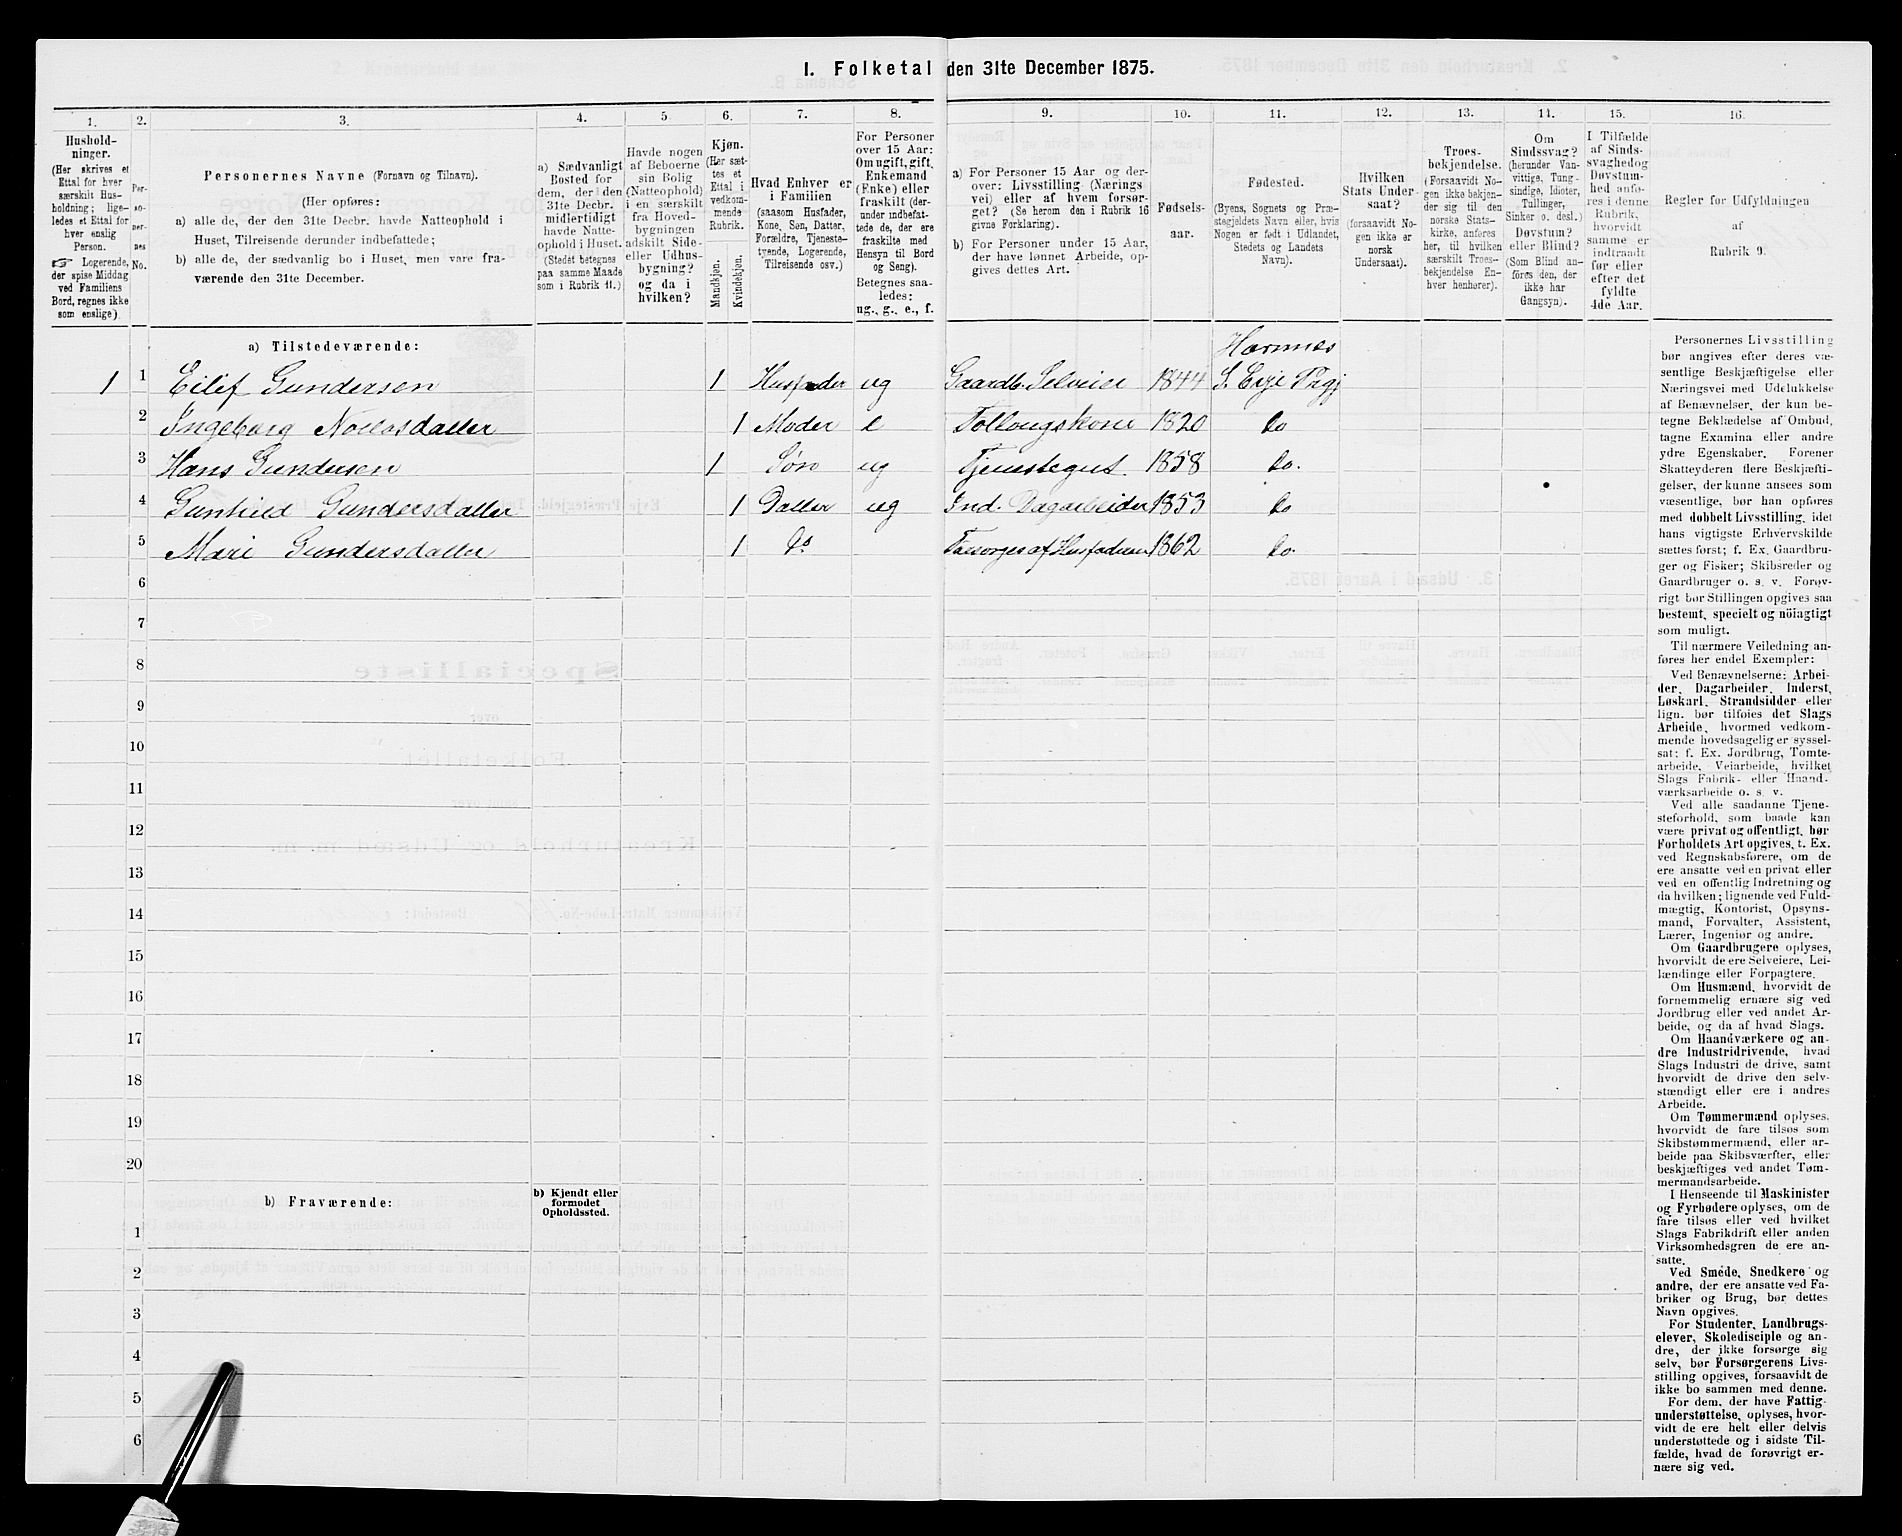 I. Folketal den 31te December 1875.
1. 2. 3. 4. 5. 6. 7. 8. 9. 10. 11. 12. 13. 14. 15. 16.
Hushold-
ninger.
(Her skrives et
Ettal for hver
særskilt Hus-
holdning; lige-
ledes et Ettal for
hver enslig
Person.
☞ Logerende,
der spise Middag
ved Familiens
Bord, regnes ikke
som enslige)
Per-
so-
ner-
nes
No.
Personernes Navne (Fornavn og Tilnavn).
(Her opføres:
a) alle de, der den 31te Decbr. havde Natteophold i
Huset, Tilreisende derunder indbefattede;
b) alle de, der sædvanlig bo i Huset, men vare fra-
værende den 31te December.
a) Sædvanligt
Bosted for
dem, der den
31te Decbr.
midlertidigt
havde Natte-
ophold i Huset.
(Stedet betegnes
paa samme Maade
som i Rubrik 11.)
Havde nogen
af Beboerne
sin Bolig
(Natteophold)
i en særskilt
fra Hoved-
bygningen
adskilt Side-
eller Udhus-
bygning?
og da i
hvilken?
Kjøn.
(Her sæt-
tes et
Ettal i
vedkom-
mende
Rubrik.
Mandkjøn.
Kvindekjøn.
Hvad Enhver er
i Familien
(saasom Husfader,
Kone, Søn, Datter,
Forældre, Tjeneste-
tyende, Logerende,
Tilreisende osv.)
For Personer
over 15 Aar:
Om ugift, gift,
Enkemand
(Enke) eller
fraskilt (der-
under indbefat-
tede de, der ere
fraskilte med
Hensyn til Bord
og Seng).
Betegnes saa-
ledes:
ug., g., e., f.
a) For Personer 15 Aar og der-
over: Livsstilling (Nærings-
vei) eller af hvem forsør-
get? (Se herom den i Rubrik 16
givne Forklaring).
b) For Personer under 15 Aar,
der have lønnet Arbeide, op-
gives dettes Art.
Fødsels-
aar.
Fødested.
(Byens, Sognets og Præ-
stegjeldets Navn eller, hvis
Nogen er født i Udlandet,
Stedets og Landets
Navn).
Hvilken
Stats Under-
saat?
(forsaavidt No-
gen ikke er
norsk
Undersaat).
Troes-
bekjendelse.
(Forsaavidt No-
gen ikke bekjen-
der sig til den
norske Stats-
kirke, anføres
her, til hvilken
særskilt Troes-
bekjendelse En-
hver henhører).
Om
Sindssvag?
(herunder Van-
vittige, Tung-
sindige, Idioter,
Tullinger,
Sinker o. desl.)
Døvstum?
eller Blind?
(Som Blind an-
føres den, der
ikke har
Gangsyn).
I Tilfælde
af Sinds-
svaghed og
Døvstum-
hed anfø-
res i denne
Rubrik,
hvorvidt
samme er
indtraadt
før eller
efter det
fyldte
4de Aar.
Regler for Udfyldningen
af
Rubrik 9.
a) Tilstedeværende:
Hornnes
1 1 Eilef Gundersen 1 Husfader ug Gaardb. Selveier 1844 S. Evje Prgj
2 Ingeborg Nottosdatter 1 Moder e Follougskone 1820 Do
3 Hans Gundersen 1 Søn ug Tjenestegut 1858 Do.
4 Gunhild Gundersdatter 1 Datter ug Ind. Dagarbeider 1853 Do
5 Mari Gundersdatter 1 Do. Forsørges af Husfaderen 1862 Do.
6
7
8
9
10
11
12
13
14
15
16
17
18
19
20
b) Fraværende:
b) Kjendt eller
formodet
Opholdssted.
1
2
3
4
5
6
Personernes Livsstilling
bør angives efter deres væ-
sentlige Beskjæftigelse eller
Næringsvei med Udelukkelse
af Benævnelser, der kun be-
tegne Beklædelse af Ombud,
tagne Examina eller andre
ydre Egenskaber. Forener
Skatteyderen flere Beskjæfti-
gelser, der kunne ansees som
væsentlige, bør han opføres
med dobbelt Livsstilling, idet
hans vigtigste Erhvervskilde
sættes først; f. Ex. Gaardbru-
ger og Fisker; Skibsreder og
Gaardbruger o. s. v. Forøv-
rigt bør Stillingen opgives saa
bestemt, specielt og nöiagtigt
som muligt.
Til nærmere Veiledning an-
føres her endel Exempler:
Ved Benævnelserne: Arbei-
der, Dagarbeider, Inderst,
Løskarl, Strandsidder eller
lign. bør tilføies det Slags
Arbeide, hvormed vedkom-
mende hovedsagelig er syssel-
sat; f. Ex. Jordbrug, Tomte-
arbeide, Veiarbeide, hvilket
Slags Fabrik- eller Haand-
værksarbeide o. s. v.
Ved alle saadanne Tjene-
steforhold, som baade kan
være privat og offentligt, bør
Forholdets Art opgives, t. Ex.
ved Regnskabsførere, om de
ere ansatte ved en privat eller
ved en offentlig Indretning og
da hvilken; lignende ved Fuld-
mægtig, Kontorist, Opsyns-
mand, Forvalter, Assistent,
Lærer, Ingeniør og andre.
Om Gaardbrugere oplyses,
hvorvidt de ere Selveiere, Lei-
lændinge eller Forpagtere.
Om Husmænd, hvorvidt de
fornemmelig ernære sig ved
Jordbrug eller ved andet Ar-
beide, og da af hvad Slags.
Om Haandværkere og an-
dre Industridrivende, hvad
Slags Industri de drive, samt
hvorvidt de drive den selv-
stændigt eller ere i andres
Arbeide.
Om Tømmermænd oplyses,
hvorvidt de fare tilsøs som
Skibstømmermænd, eller ar-
beide paa Skibsværfter, eller
beskjæftiges ved andet Tøm-
mermandsarbeide.
I Henseende til Maskinister
og Fyrbødere oplyses, om de
fare tilsøs eller ved hvilket
Slags Fabrikdrift eller anden
Virksomhedsgren de ere an-
satte.
Ved Smede, Snedkere og
andre, der ere ansatte ved Fa-
briker og Brug, bør dettes
Navn opgives.
For Studenter, Landbrugs-
elever, Skoledisciple og an-
dre, der ikke forsørge sig
selv, bør Forsørgerens Livs-
stilling opgives, forsaavidt de
ikke bo sammen med denne.
For dem, der have Fattig-
understøttelse, oplyses, hvor-
vidt de ere helt eller delvis
understøttede og i sidste Til-
fælde, hvad de forøvrigt er-
nære sig ved.